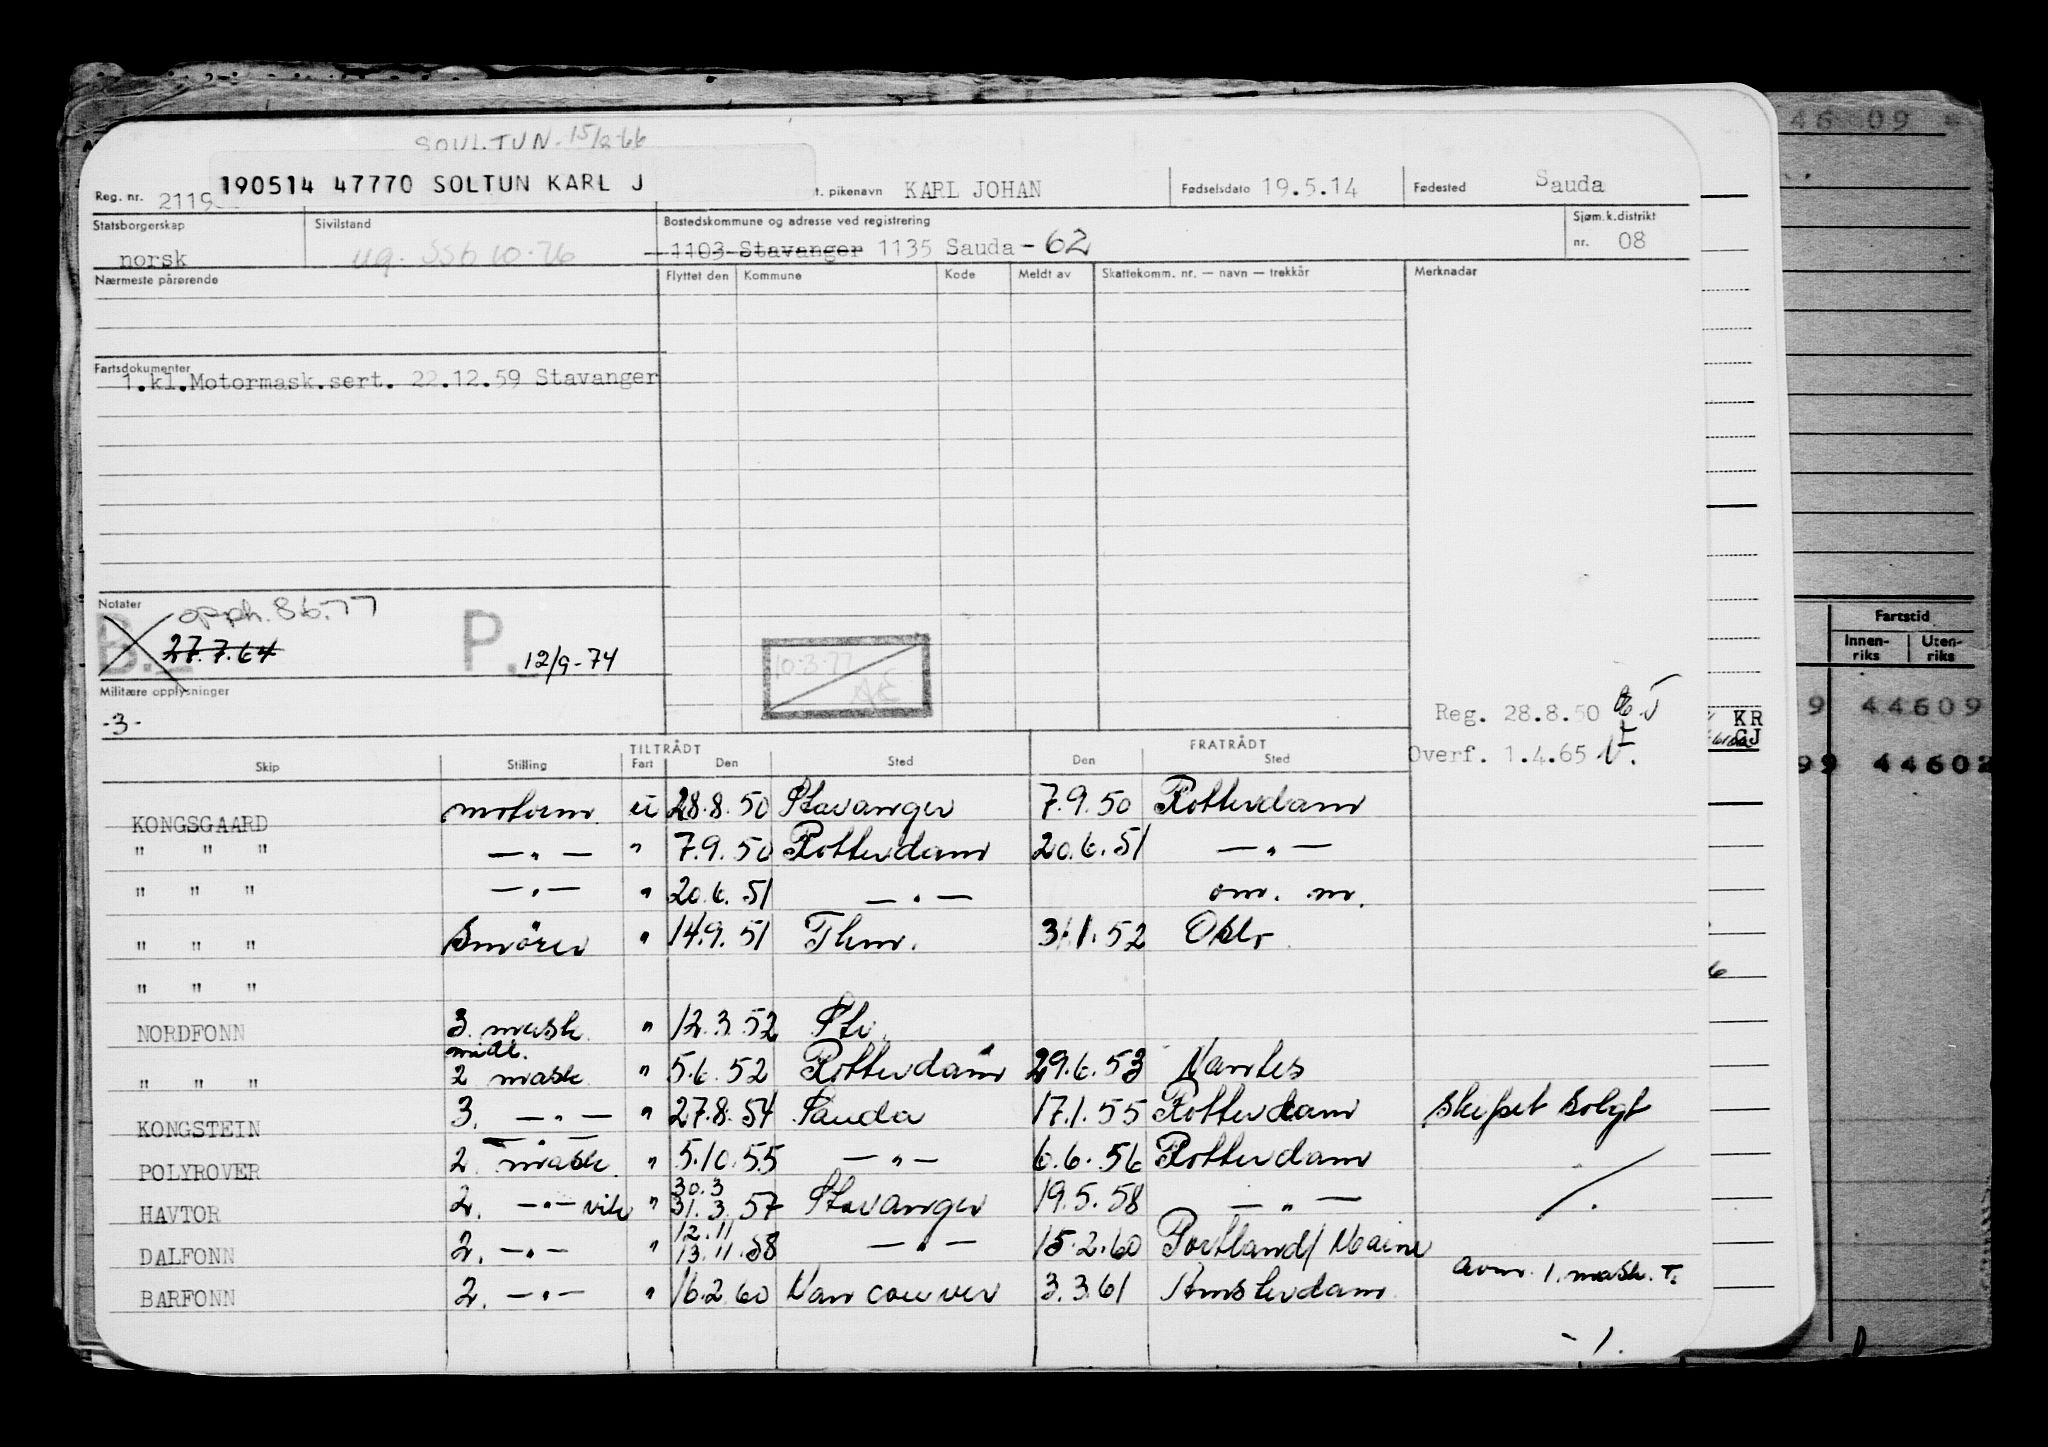 SOULTUN 15/2-66
Reg. nr. 2119 190514 47770 SOLTUN KARL J t. pikenavn KARL JOHAN Fødselsdato 19.5.14 Fødested Sauda
Statsborgerskap Sivilstand Bostedskommune og adresse ved registrering Sjøm.k.distrikt
norsk ug. SSB 10-76 1103 Stavanger 1135 Sauda - 62 nr. 08
Nærmeste pårørende Flyttet den Kommune Kode Meldt av Skattekomm. nr. — navn — trekkår Merknadar
Fartsdokumenter
1.kl.Motormask.sert. 22.12.59 Stavanger
Notater opph. 8.6.77
B. 27.7.64 P. 12/9-74
10.3.77
Militære opplysninger
-3-
Reg. 28.8.50
Overf. 1.4.65
TILTRÅDT FRATRÅDT
Skip Stilling Fart Den Sted Den Sted
KONGSGAARD motorm. u 28.8.50 Stavanger 7.9.50 Rotterdam
" " " — " — " 7.9.50 Rotterdam 20.6.51 — " —
" " " — " — " 20.6.51 — " — om. m.
" " " Smörer " 14.9.51 Thm. 31.1.52 Oslo
" " "
NORDFONN 3. mask. " 12.3.52 Stv.
midl.
" " " 2 mask. " 5.6.52 Rotterdam 29.6.53 Nantes
KONGSTEIN 3. — " — " 27.8.54 Sauda 17.1.55 Rotterdam Skipet solgt
POLYROVER 2. mask. " 5.10.55 — " — 6.6.56 Rotterdam
HAVTOR 2. — " — vik " 30.3 31.3.57 Stavanger 19.5.58 — " —
DALFONN 2. — " — " 12.11 13.11.58 — " — 15.2.60 Portland/Maine
BARFONN 2. — " — " 16.2.60 Vancouver 3.3.61 Amsterdam avm. 1. mask. T.
- 1.
46609
Fartstid
Innen-riks Uten-riks
9 44609
99 44602
KR
GJ